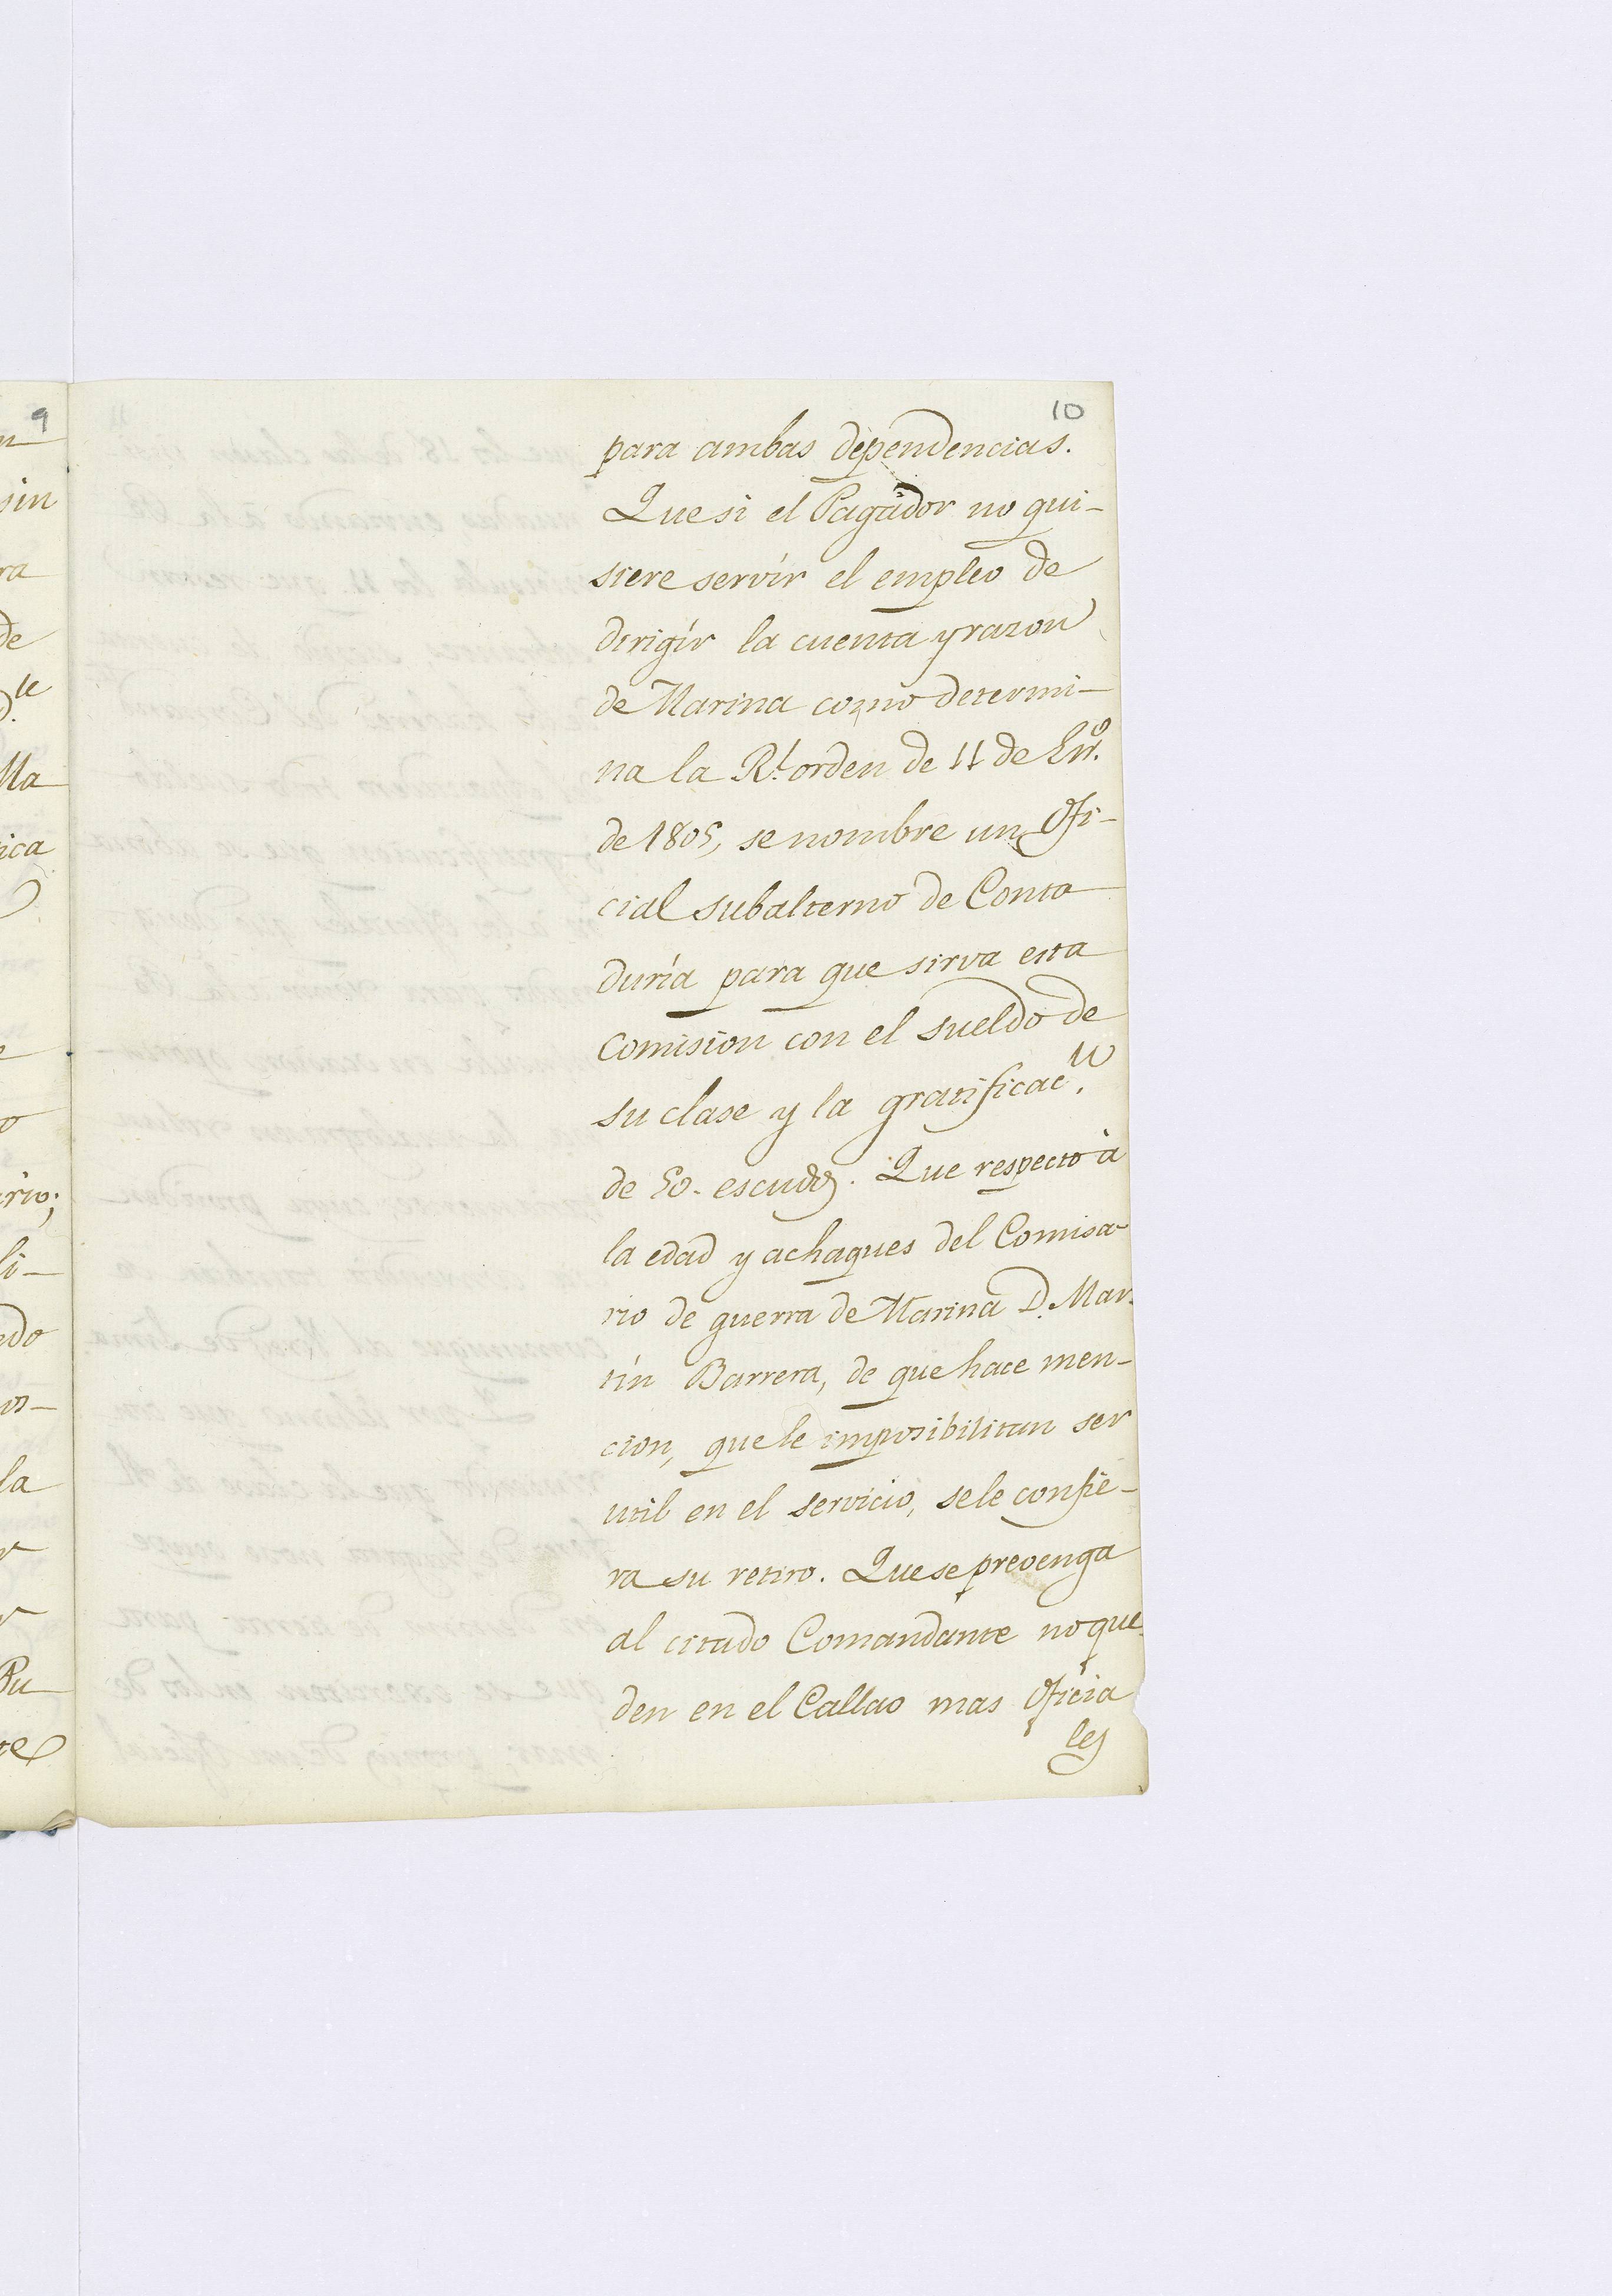 10
para ambas dependencias.
Que si el Pagador no qui-
siere servir el empleo de
dirigir la cuenta y razon
de Marina como determi-
na la Rl. orden de 11 de Enº.
de 1805, se nombre un Ofi-
cial subalterno de Conta
duría para que sirva esta
Comision con el sueldo de
su clase y la gratificacn.
de 50. escudos. Que respecto à
la edad y achaques del Comisa-
rio de guerra de Marina D. Mar-
tín Barrera, de que hace men-
cion, que le imposibilitan ser
util en el servicio, se le confie-
ra su retiro. Que se prevenga
al citado Comandante no que-
den en el Callao mas Oficia
les
9
sin
ra
de
lla
ica
rio;
li-
ndo
la